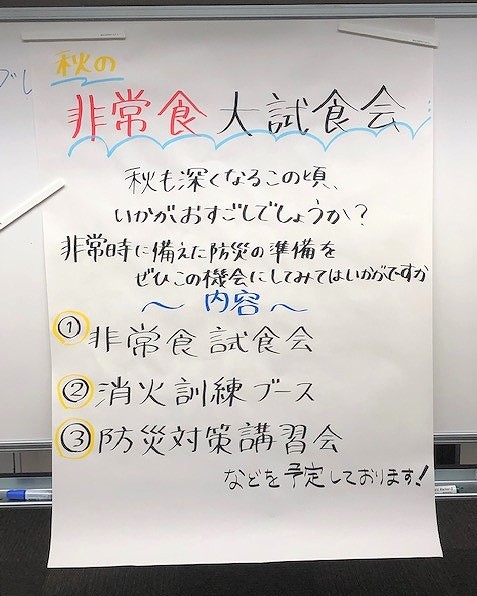 秋の
非常食大試食会
秋も深くなるこの頃、
いかがおすごしでしょうか?
非常時に備えた防災の準備を
ぜひこの機会にしてみてはいかがですか
〜 内容 〜
① 非常食試食会
② 消火訓練ブース
③ 防災対策講習会
などを予定しております!